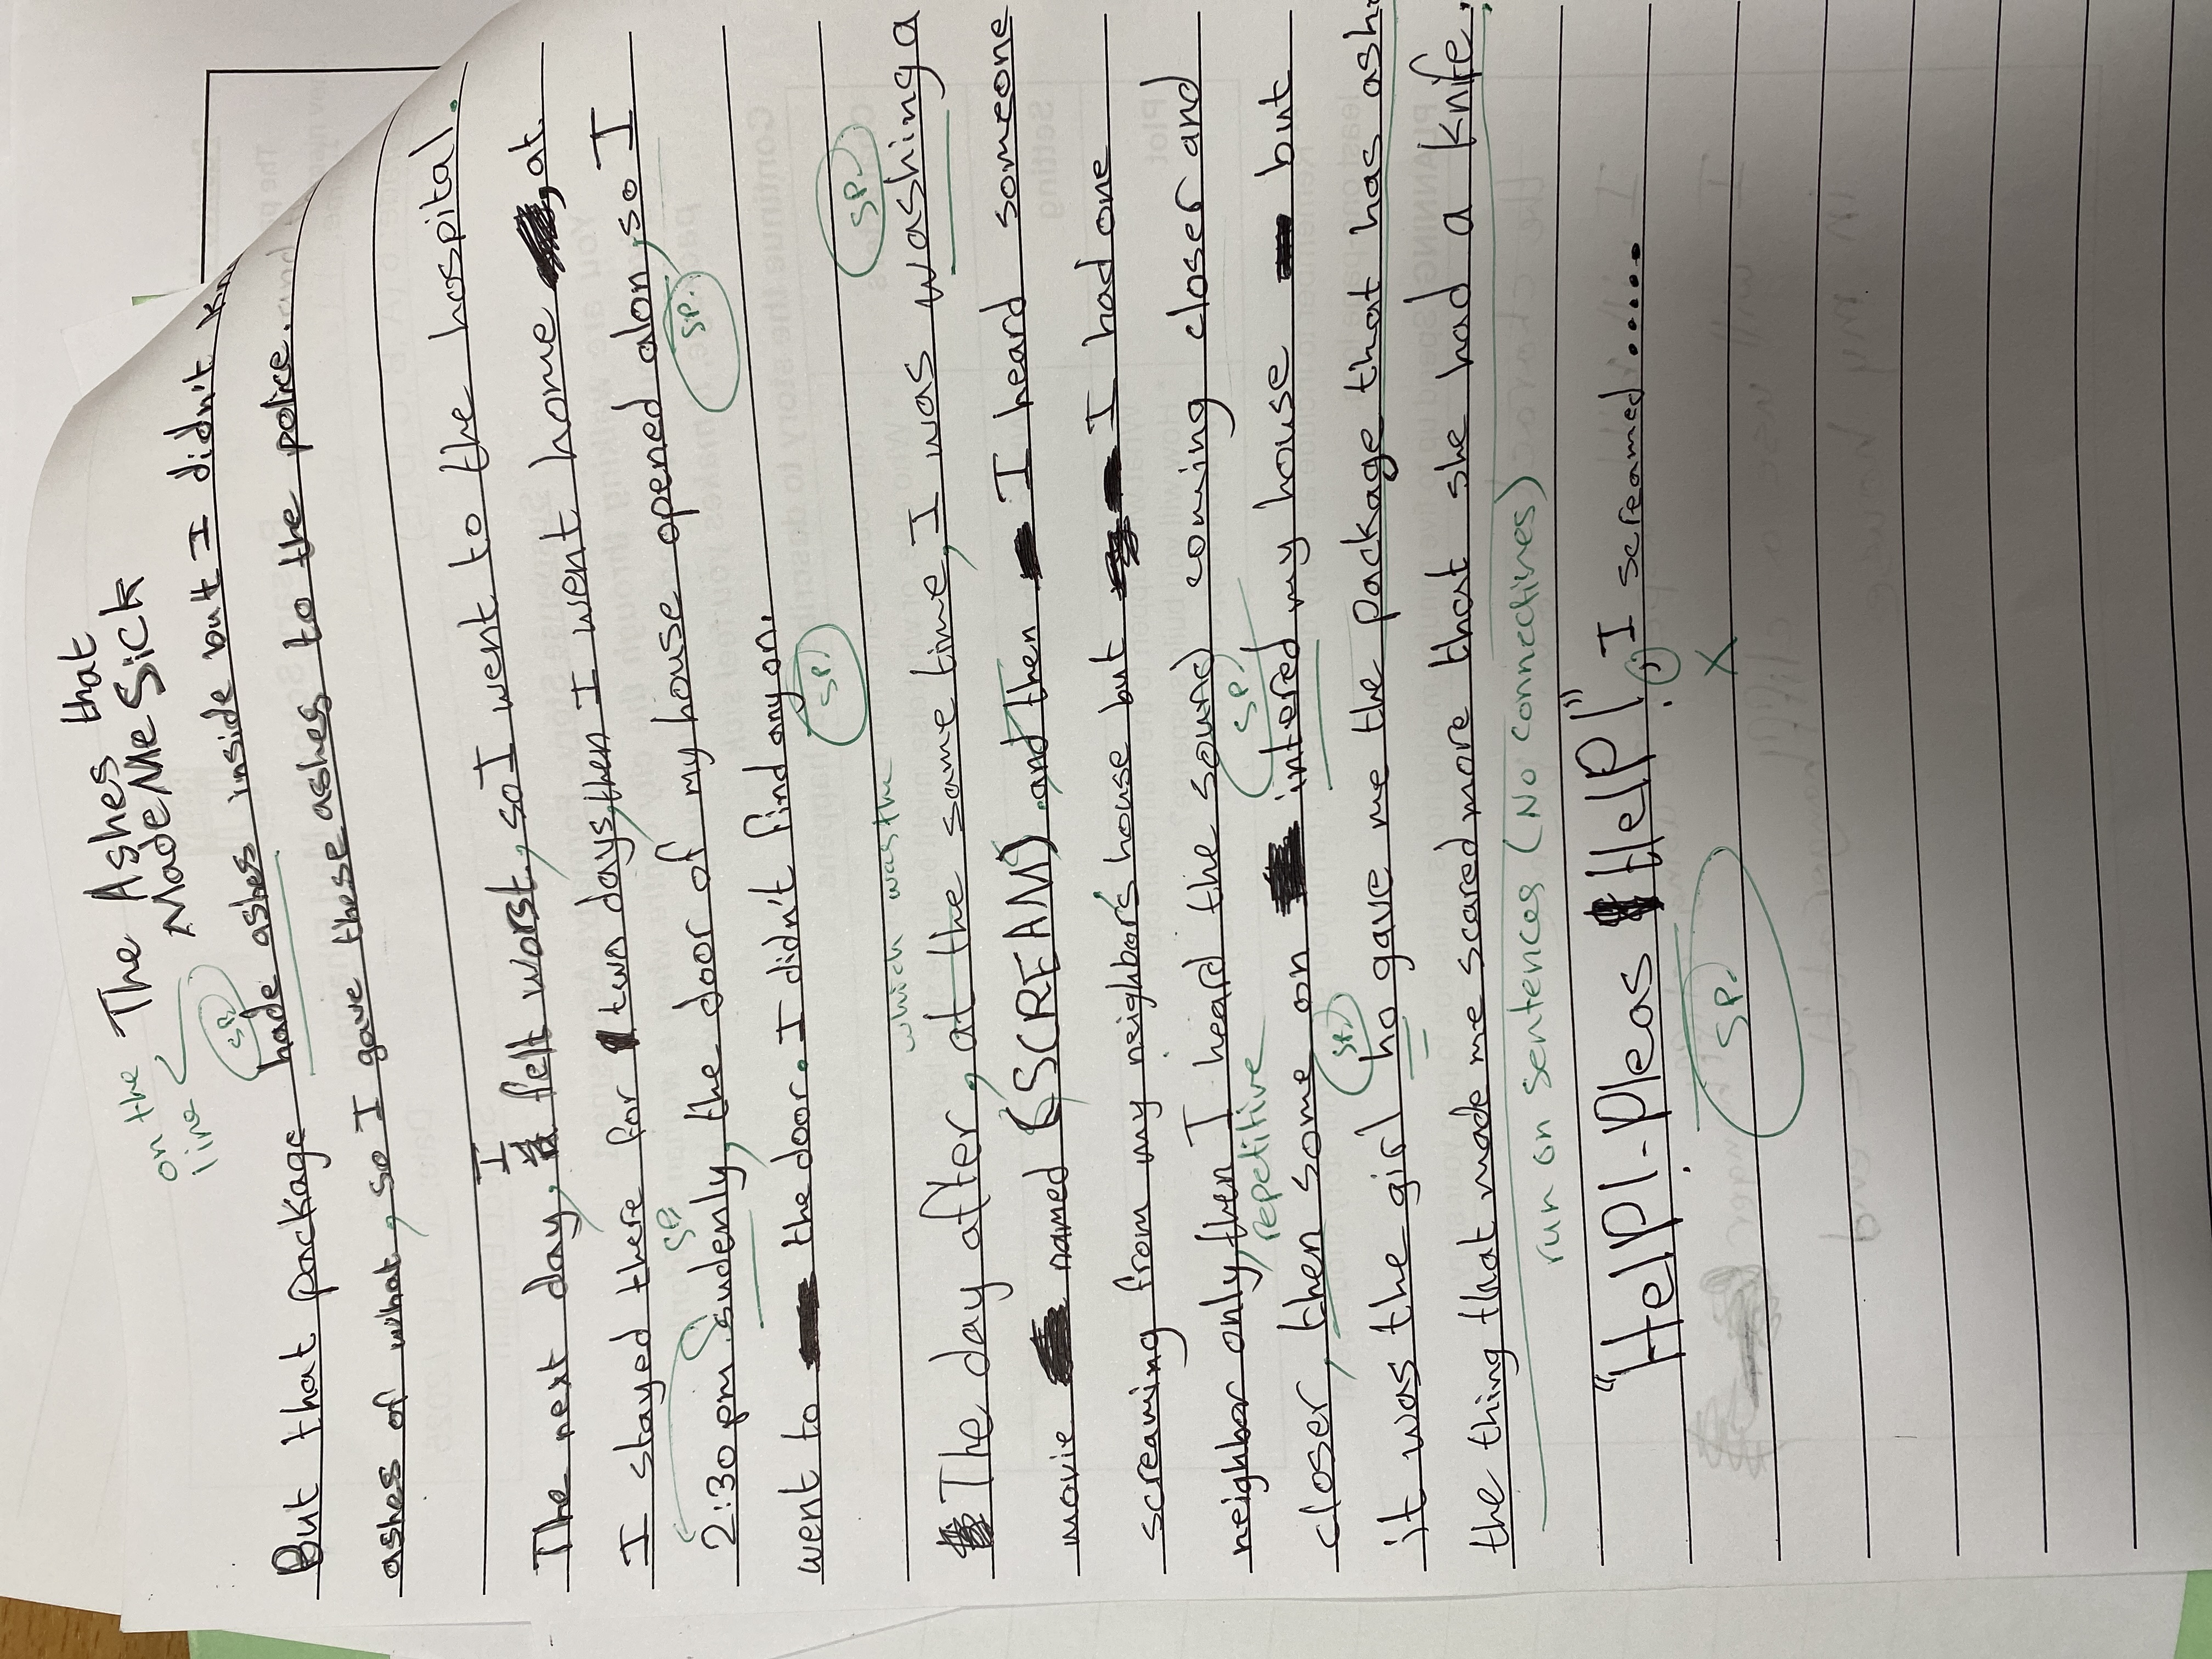 The Ashes that
Made Me Sick
on the
line
But that package hade ashes inside but I didn't
sp.
ashes of what, so I gave these ashes to the police.
The next day, I felt worst, so I went to the hospital.
I stayed there for two days, then I went home at
sp
2:30 pm sudenly, the door of my house opened alon, so I
sp.
went to the door. I didn't find any on.
sp.
which was the
sp.
The day after, at the same time, I was washing a
movie named (SCREAM) and then I heard someone
screaming from my neighbor's house but I had one
neighbor only, then I heard the sound coming closer and
repetitive
sp.
closer, then some on intered my house but
it was the girl ho gave me the package that has
sp.
the thing that made me scared more that she had a knife.
run on sentences (No connectives)
"Help! - Pleas Help!" I screamed.....
(,)
sp.
X